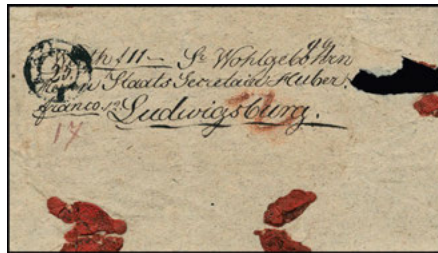 Sr. Wohlgeborn
Herrn Staats Secretair Huber.
franco.
Ludwigsburg.
17